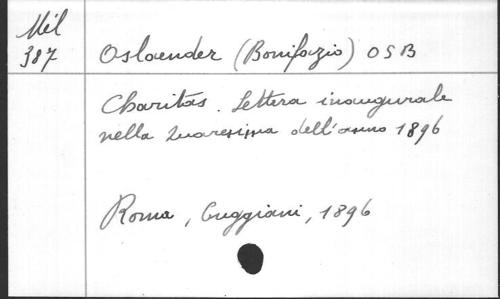 Mél
387
Oslaender (Bonifazio) OSB
Charitas. Lettera inaugurale
nella Quaresima dell'anno 1896
Roma, Cuggiani, 1896